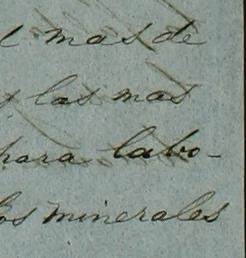 mas de
y las mas
para labo-
los minerales